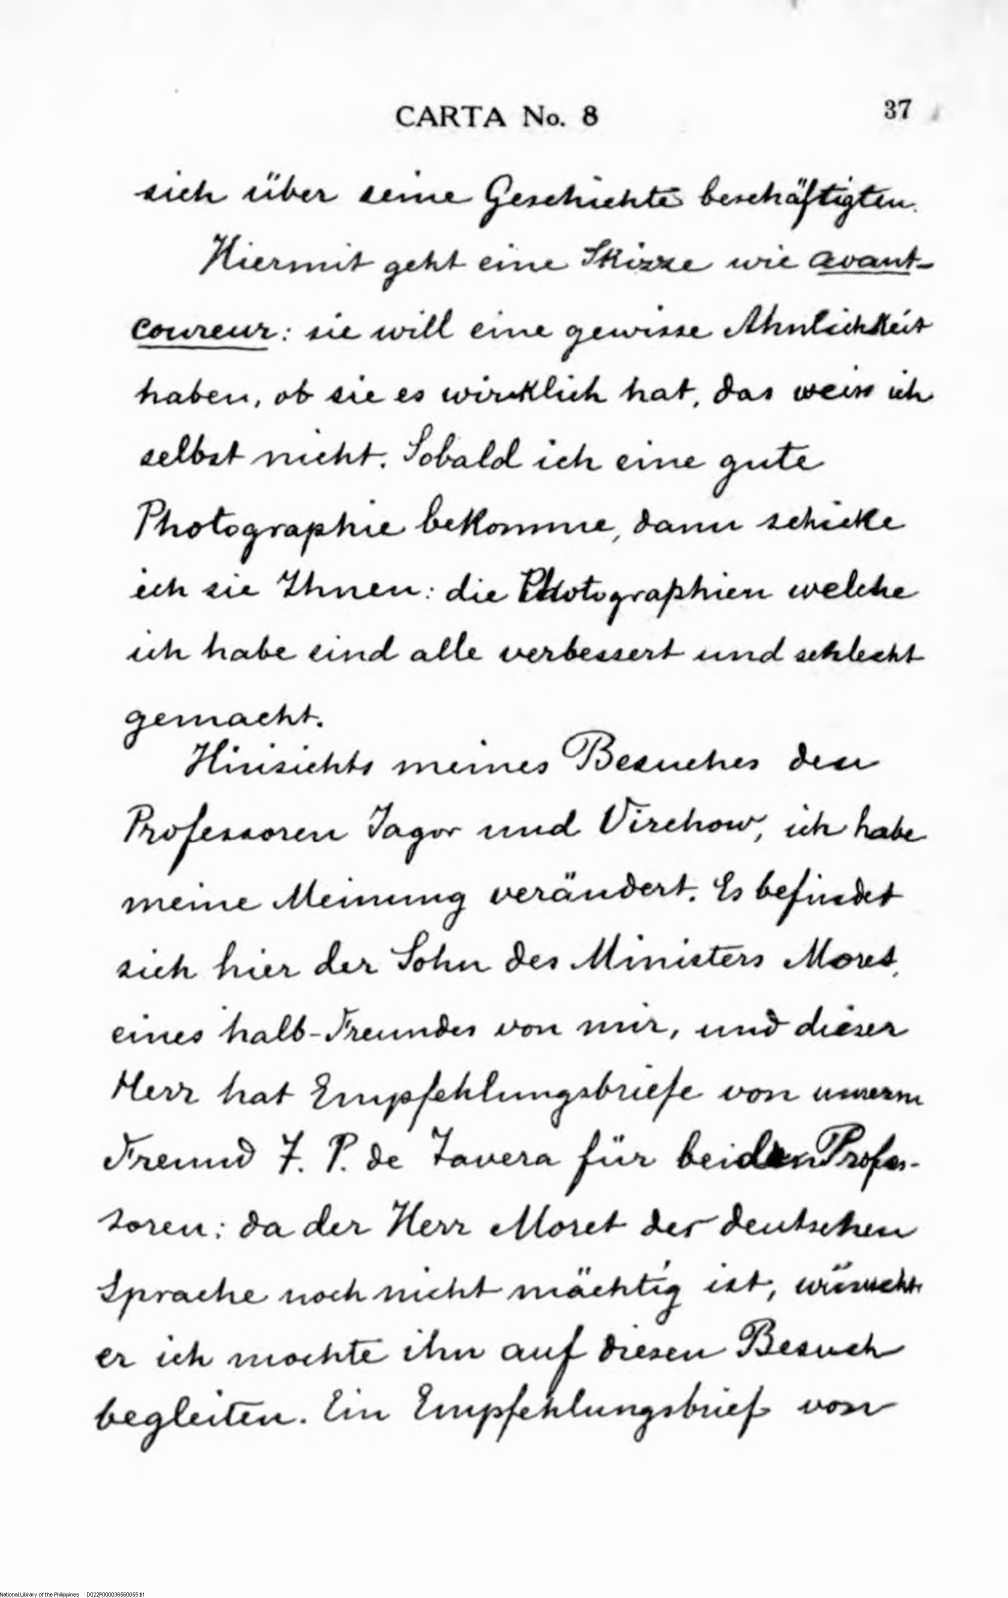 CARTA No. 8
37
sich über seine Geschichte beschäftigten.
Hiermit geht eine Skizze wie avant-
coureur: sie will eine gewisse Ahnlichkeit
haben, ob sie es wirklich hat, das weiss ich
selbst nicht. Sobald ich eine gute
Photographie bekomme, dann schicke
ich sie Ihnen: die Photographien welche
ich habe sind alle verbessert und schlecht
gemacht.
Hinsichts meines Besuches den
Professoren Jagor und Virchow, ich habe
meine Meinung verändert. Es befindet
sich hier der Sohn des Ministers Moret,
eines halb-Freundes von mir, und dieser
Herr hat Empfehlungsbriefe von unserm
Freund T. P. de Tavera für beiden Profes-
soren: da der Herr Moret der deutschen
Sprache noch nicht mächtig ist, wünscht
er ich mochte ihn auf diesen Besuch
begleiten. Ein Empfehlungsbrief von
National Library of the Philippines